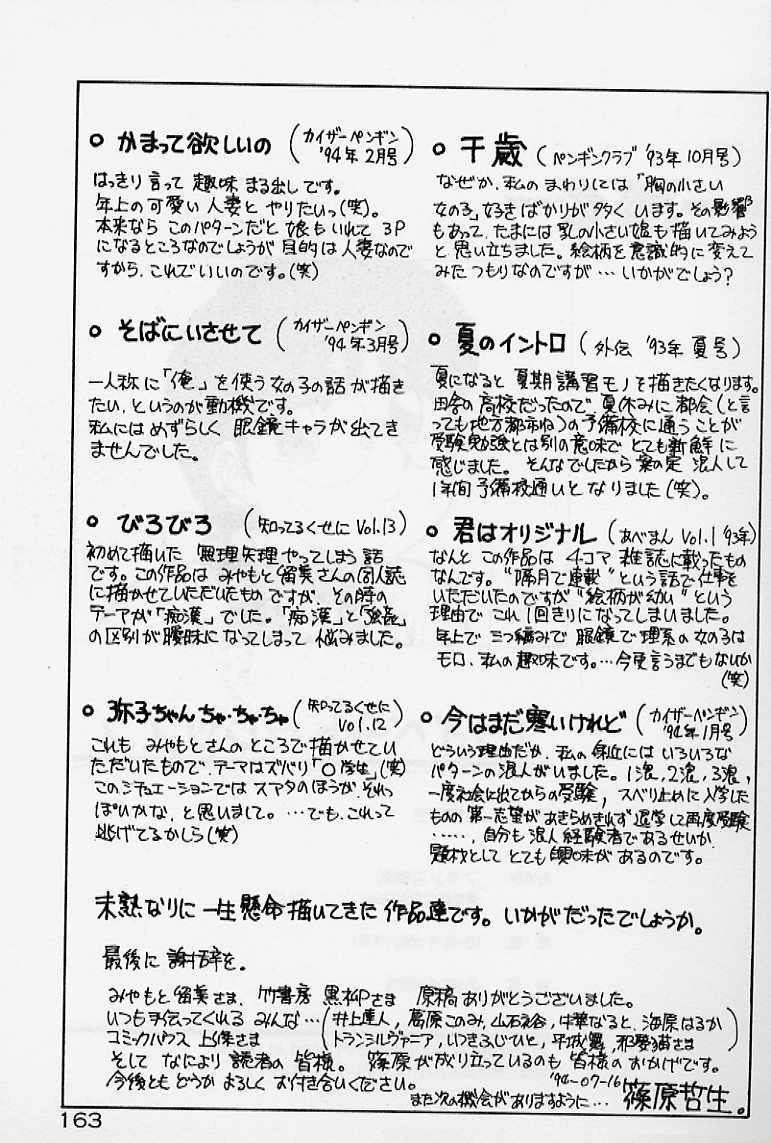 ○ かまって欲しいの (カイザーペンギン '94年2月号)
はっきり言って 趣味 まる出しです。
年上の可愛い 人妻と やりたいっ(笑)。
本来なら このパターンだと 娘もいれて 3P
になるところなのでしょうが 目的は 人妻なので
すから、これでいいのです。(笑)
○ そばにいさせて (カイザーペンギン '94年3月号)
一人称に「俺」を使う女の子の話が描き
たい、というのが動機です。
私にはめずらしく 眼鏡キャラが出てき
ませんでした。
○ びろびろ (知ってるくせに Vol.13)
初めて描いた 無理矢理やってしまう話
です。この作品は みやもと留美さんの同人誌
に描かせていただいたものですが、その時の
テーマが「痴漢」でした。「痴漢」と「強姦」
の区別が曖昧になってしまって 悩みました。
○ 弥子ちゃん ちゃ・ちゃ・ちゃ (知ってるくせに Vol.12)
これも みやもとさんのところで描かせてい
ただいたもので、テーマはズバリ「○学生」(笑)
このシチュエーションでは スマタのほうが、それっ
ぽいかな、と思いまして。…でも、これって
逃げてるかしら(笑)
○ 千歳 (ペンギンクラブ '93年10月号)
なぜか、私のまわりには「胸の小さい
女の子」好きばかりが多くいます。その影響
もあって、たまには乳の小さい娘も描いてみよう
と思い立ちました。絵柄を意識的に変えて
みたつもりなのですが … いかがでしょう?
○ 夏のイントロ (外伝 '93年 夏号)
夏になると 夏期講習モノを描きたくなります。
田舎の高校だったので 夏休みに都会(と言
っても地方都市ね)の予備校に通うことが
受験勉強とは別の意味で とても新鮮に
感じました。そんなでしたから 案の定 浪人して
1年間予備校通いとなりました(笑)。
○ 君はオリジナル (あべまん Vol.1 '93年)
なんと この作品は 4コマ 雑誌に載ったもの
なんです。“隔月で連載”という話で仕事を
いただいたのですが“絵柄が幼い”という
理由で これ1回きりになってしまいました。
年上で 三つ編みで 眼鏡で 理系の女の子は
モロ、私の趣味です。…今更言うまでもないか
(笑)
○ 今はまだ寒いけれど (カイザーペンギン '94年1月号)
どういう理由だか、私の身近には いろいろな
パターンの浪人がいました。1浪, 2浪, 3浪,
一度社会に出てからの受験, スベリ止めに入学した
ものの 第一志望が あきらめきれず 退学して再度受験
……、自分も 浪人経験者であるせいか
題材として とても興味があるのです。
未熟なりに 一生懸命描いてきた 作品達です。いかがだったでしょうか。
最後に 謝辞を。
みやもと留美さま、竹書房 黒柳Pさま 原稿ありがとうございました。
いつも手伝ってくれる みんな…(井上達人, 葛原このみ, 山石永谷, 中華なると, 海原はるか
トランシルヴァニア, いつきふじひと, 平城舞, 邪要猫さま)
コミックハウス 上條さま
そして なにより 読者の皆様。 篠原が成り立っているのも 皆様のおかげです。
今後とも どうか よろしく お付き合いください。 '94-07-16
また次の機会がありますように… 篠原哲生。
163